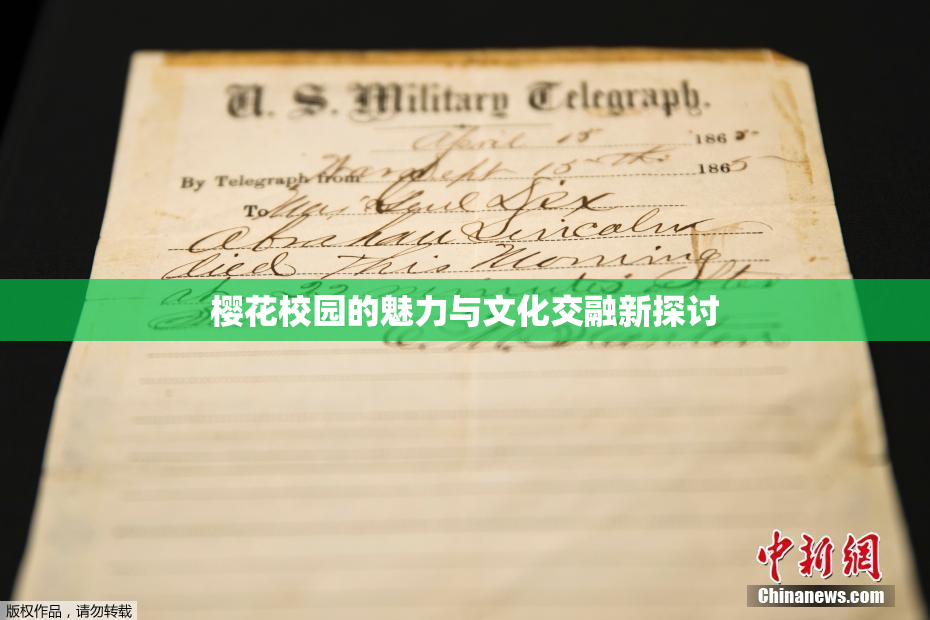 U. S. Military Telegraph.
April 15 1865
By Telegraph from War Dept 15th 1865
To Maj Genl Dix
Abraham Lincoln
died this Morning
at 22 minutes after
樱花校园的魅力与文化交融新探讨
E. M. Stanton
中新网
Chinanews.com
版权作品，请勿转载